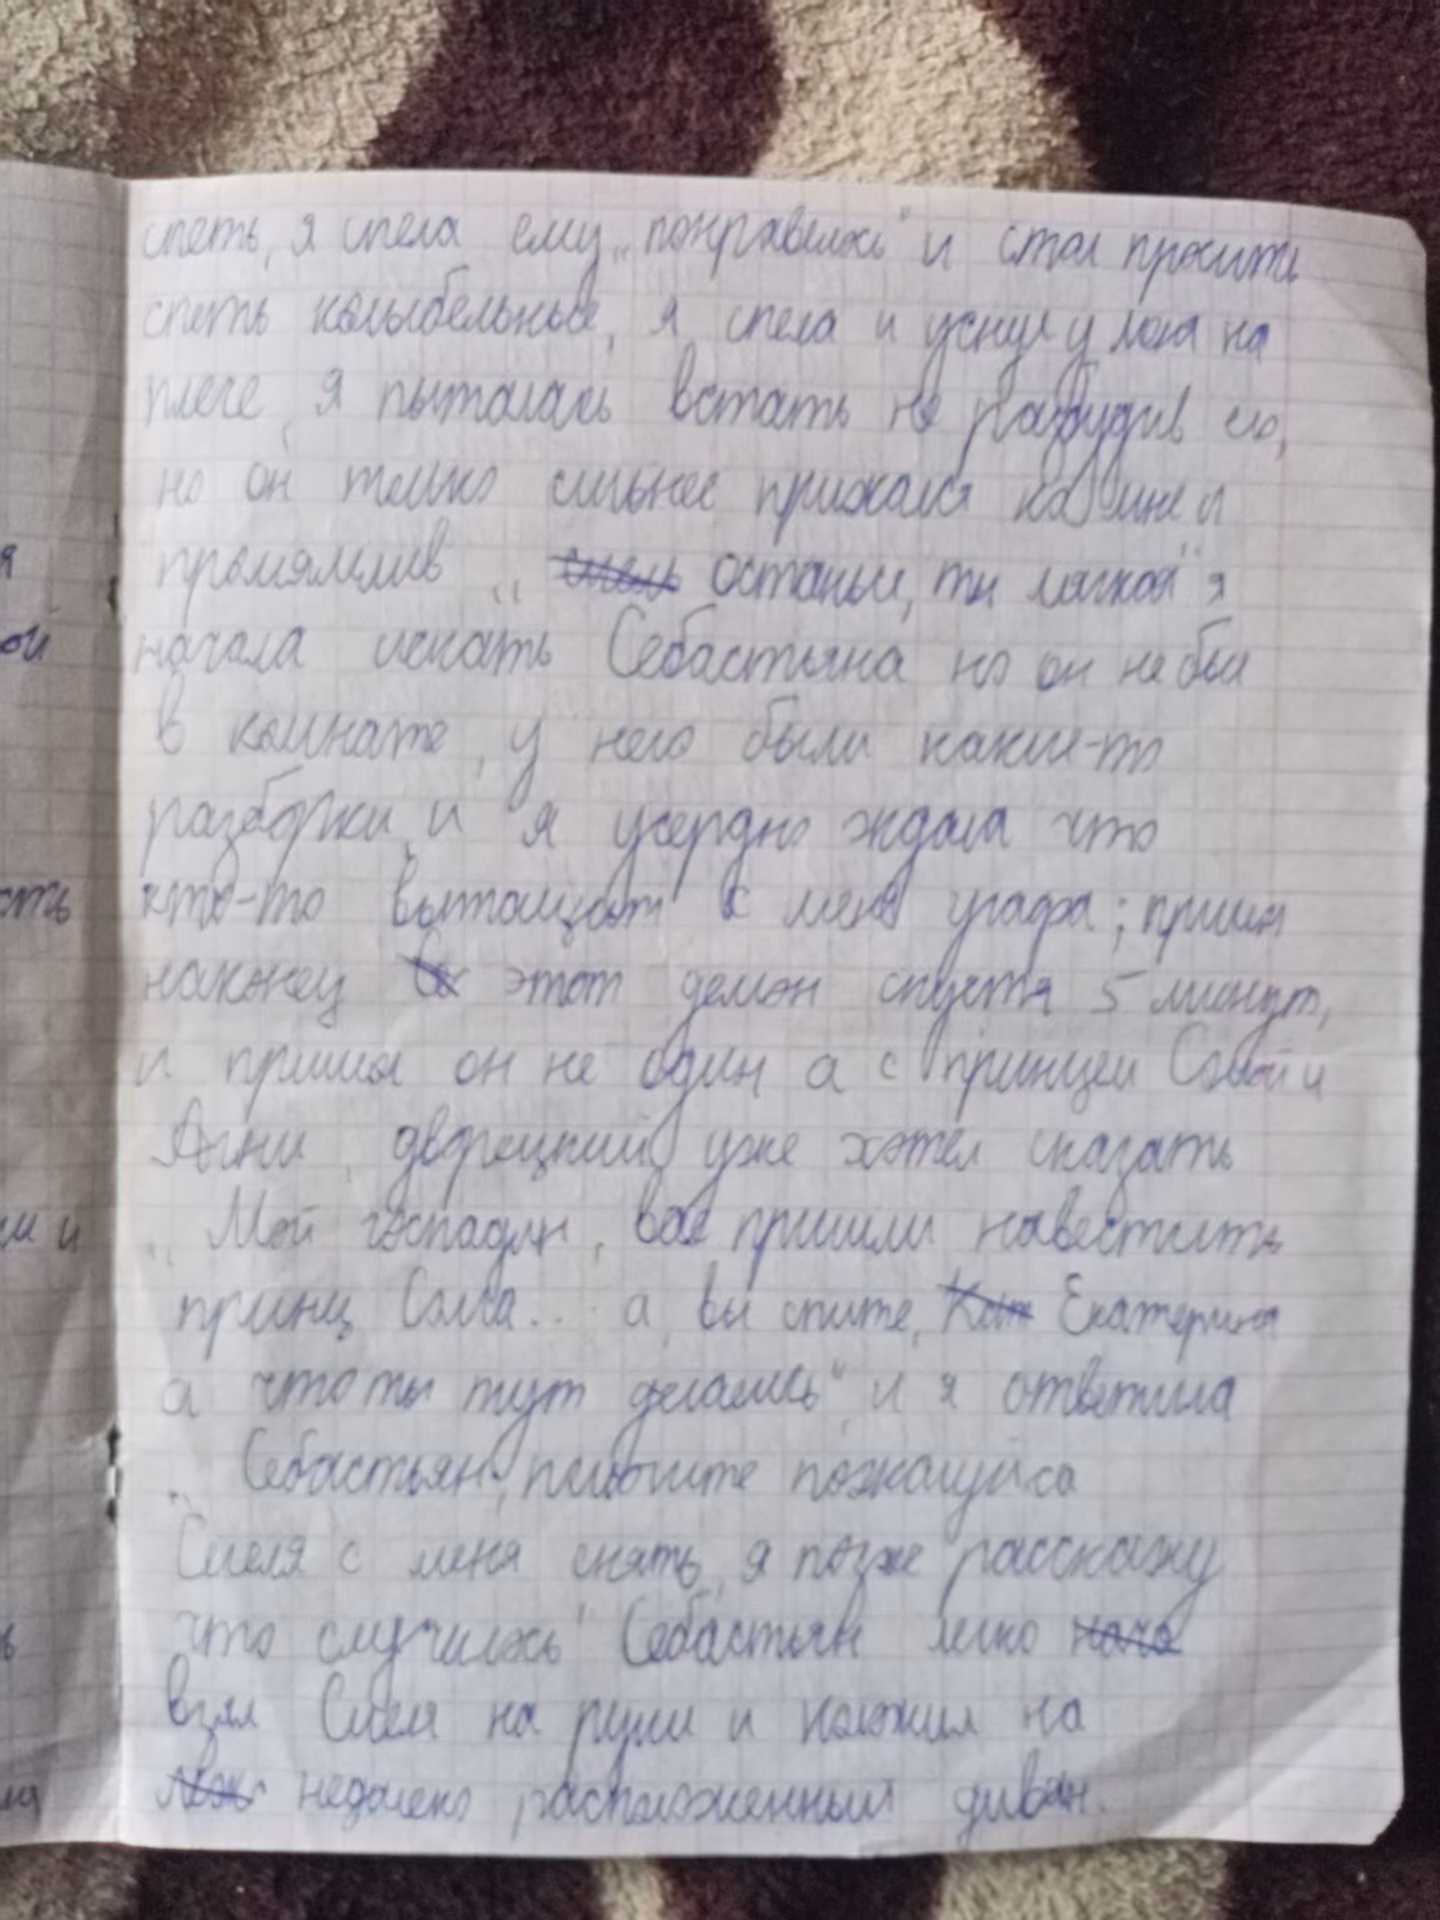 я
ой
сть
ми и
ь
ля
спеть, я спела ему „понравилось" и стал просить
спеть колыбельные, я спела и уснул у меня на
плече, я пыталась встать не разбудив его,
но он только сильнее прижался ко мне и
промямлив „ останься, ты мягкая" я
начала искать Себастьяна но он не был
в комнате, у него были какие-то
разборки, и я усердно ждала что
кто-то вытащит меня ; пришел
наконец этот демон спустя 5 минут,
и пришел он не один а с принцем Сомой и
Агни, дворецкий уже хотел сказать
„ Мой господин, вас пришли навестить
принц Сома... а, вы спите, Екатерина
а что ты тут делаешь" и я ответила
„ Себастьян, помогите пожалуйста
Сиеля с меня снять, я позже расскажу
что случилось" Себастьян легко
взял Сиеля на руки и положил на
недалеко расположенный диван.